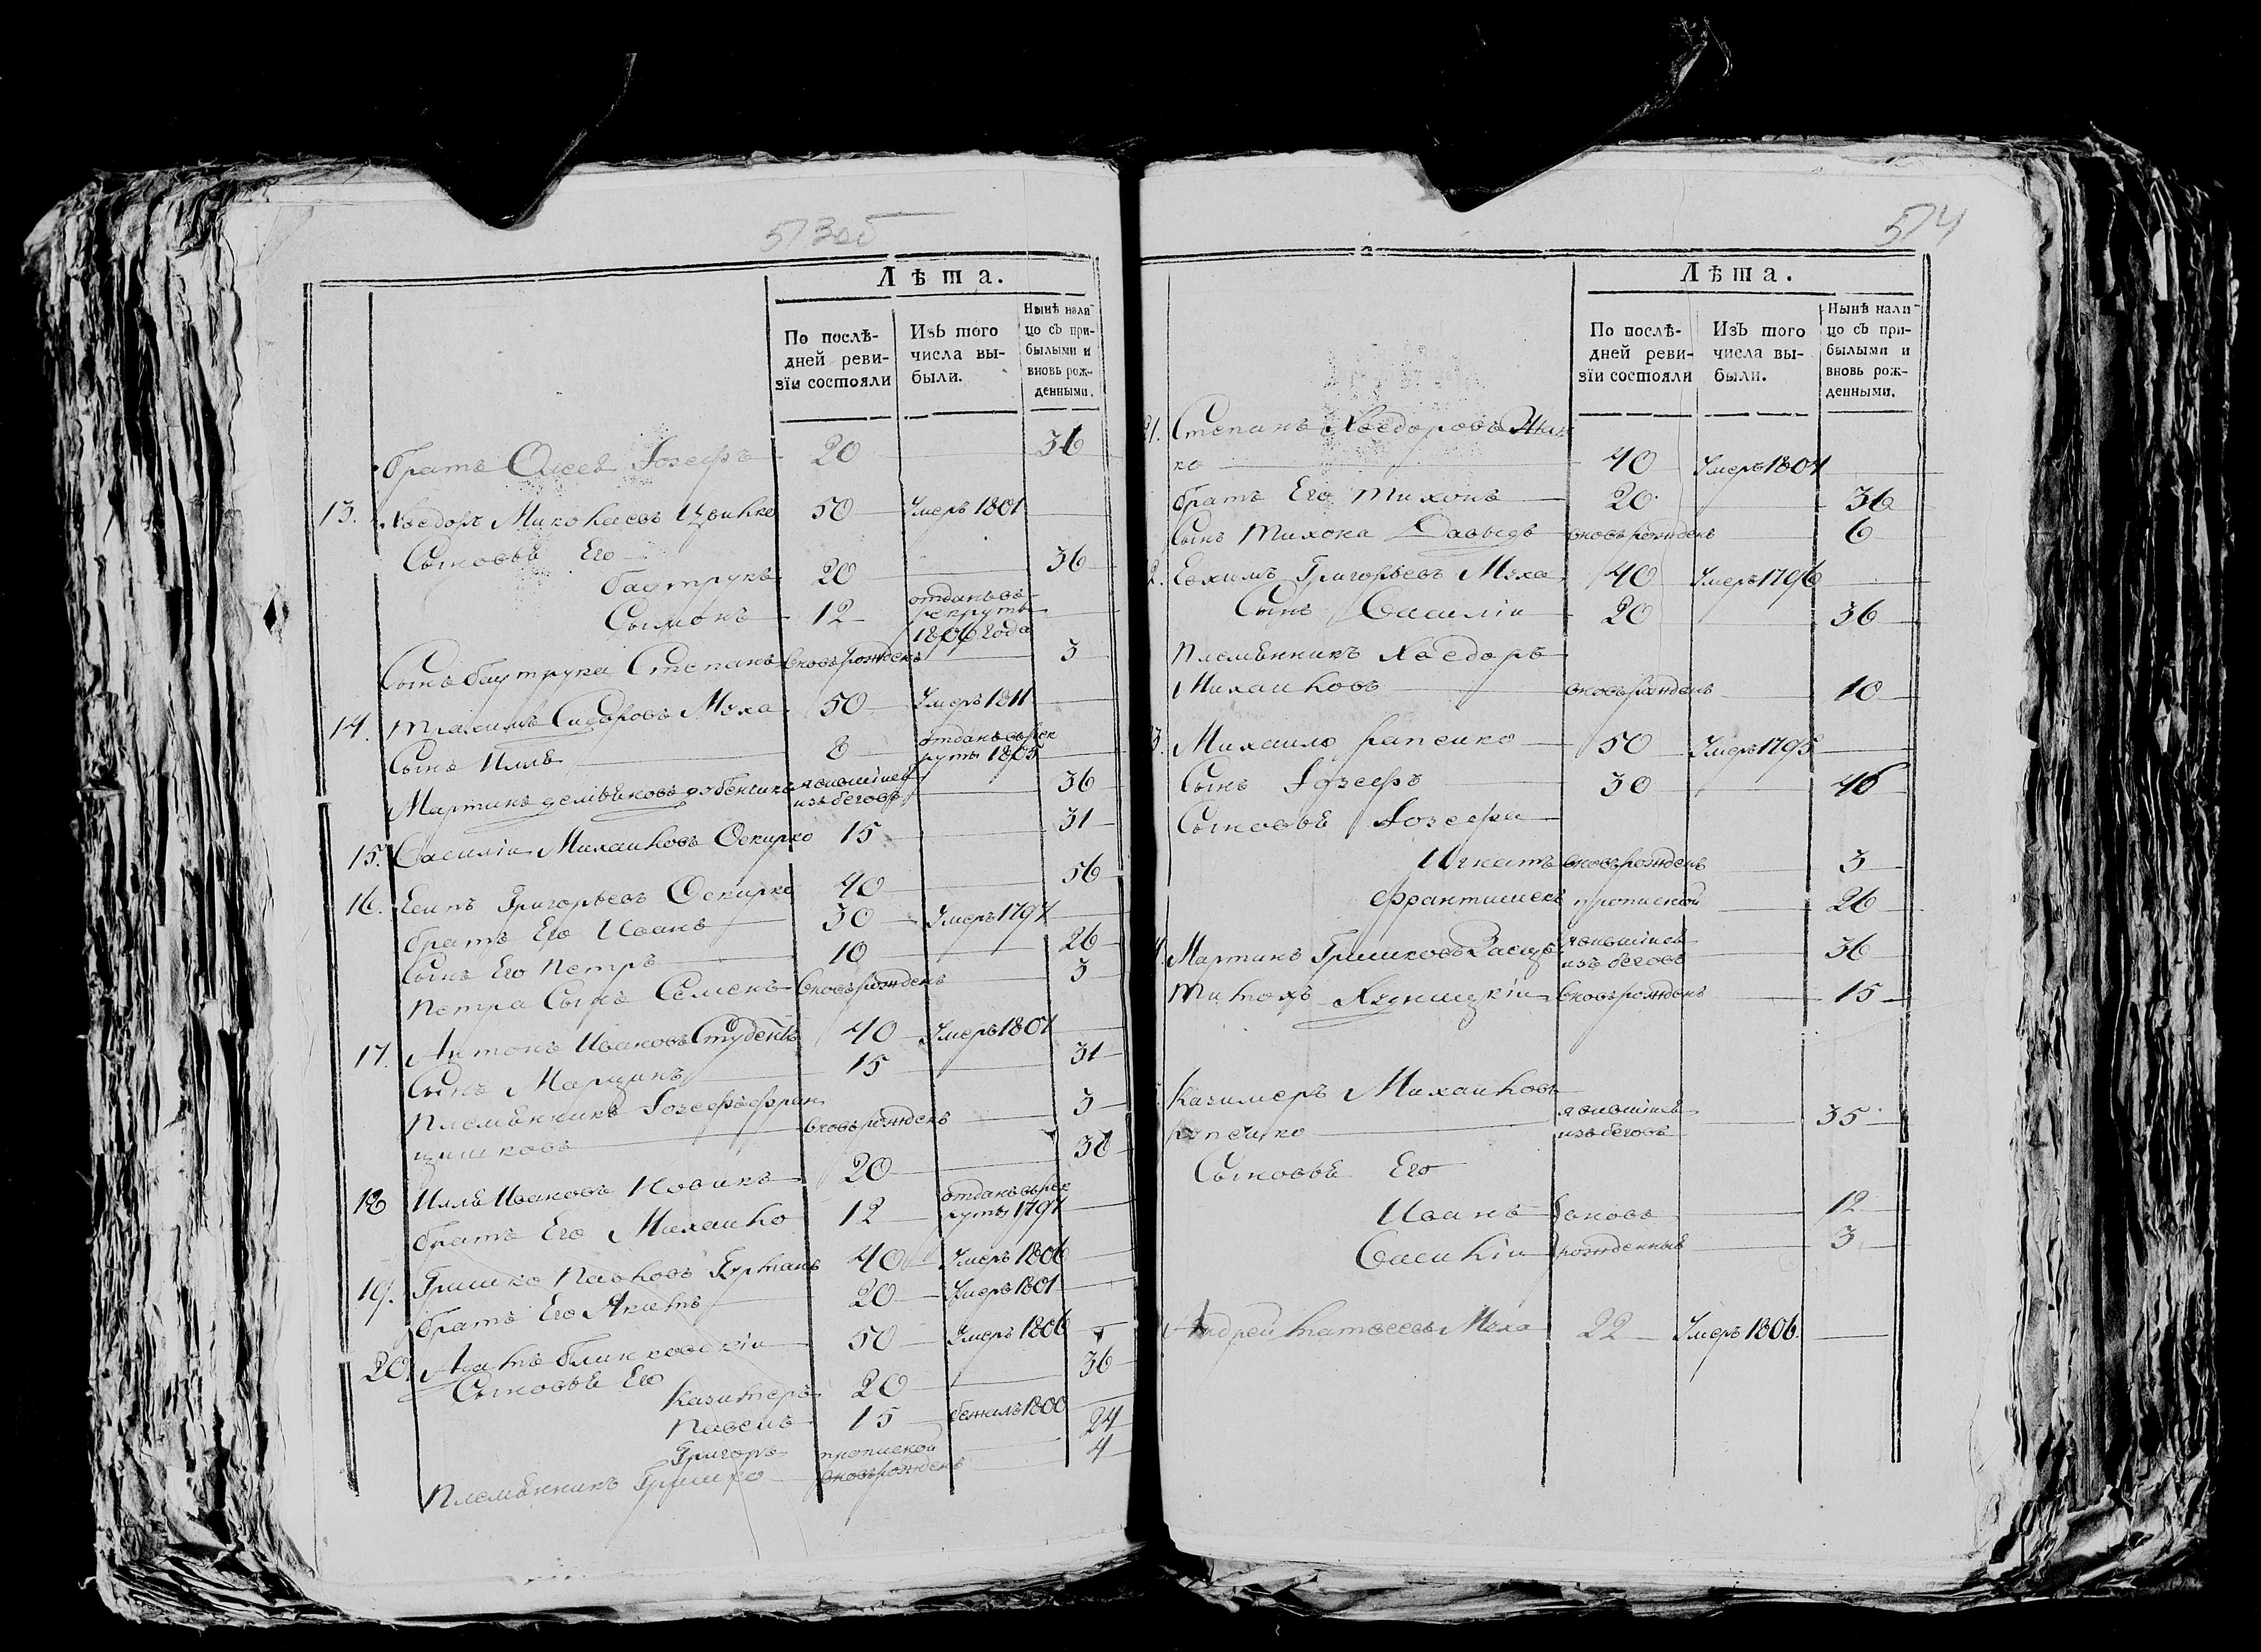 573об
Лѣта.
По послѣдней ревизіи состояли
Изъ того числа выбыли.
Нынѣ налицо съ прибылыми и вновь рожденными.
братъ Іозефъ 20 36
13. Хведоръ Миколаевъ Цвикко 50 Умеръ 1801
Сыновьѣ Его
баутрукъ 20 36
Сымонъ 12 отданъ въ рекруты 1806 года
Сынъ баутрука Степанъ вновь рожденъ 3
14. Максимъ Сидоровъ Муха 50 Умеръ 1811
Сынъ Иллѣ 8 отданъ въ рекруты 1805
Мартинъ явившійся изъ беговъ 36
15. Василіи Михайловъ Оскирко 15 31
16. Есипъ Григорьевъ Оскирко 40 56
братъ Его Иванъ 30 Умеръ 1797
Сынъ Его Петръ 10 26
Петра Сынъ Семенъ вновь рожденъ 3
17. Антонъ Ивановъ Студентъ 40 Умеръ 1801
Сынъ Марцинъ 15 31
Племѣнникъ Іозефъ Фран
цишковъ вновь рожденъ 3
18 Иллѣ Ивановъ Новикъ 20 36
братъ Его Михайло 12 отданъ въ рекруты 1797
19. Гришко Павловъ 40 Умеръ 1806
братъ Его Акимъ 20 Умеръ 1801
20 Адамъ Блинковскіи 50 Умеръ 1806
Сыновьѣ Его
Казимеръ 20 36
Павелъ 15 бежалъ 1800
Григоръ прописной 24
Племѣнникъ Гришко вновь рожденъ 4
574
Лѣта.
По послѣдней ревизіи состояли
Изъ того числа выбыли.
Нынѣ налицо съ прибылыми и вновь рожденными.
21. Степанъ Хведоровъ
ко 40 Умеръ 1801
братъ Его Тихонъ 20 36
Сынъ Тихона Давыдъ вновь рожденъ 6
2. Евхимъ Григорьевъ Муха 40 Умеръ 1796
Сынъ Василіи 20 36
Племѣнникъ Хведоръ
Михайловъ вновь рожденъ 10
3. Михайло рапейко 50 Умеръ 1795
Сынъ Іозефъ 30 46
Сыновьѣ Іозефа
Игнатъ вновь рожденъ 3
Франтишекъ прописной 26
Мартинъ Гришковъ явившійся изъ беговъ 36
вновь рожденъ 15
Казимеръ Михайловъ
рапейко явившійся изъ беговъ 35
Сыновьѣ Его
Иванъ вновь 12
Василіи рожденные 3
Андрей Матвеевъ Муха 22 Умеръ 1806